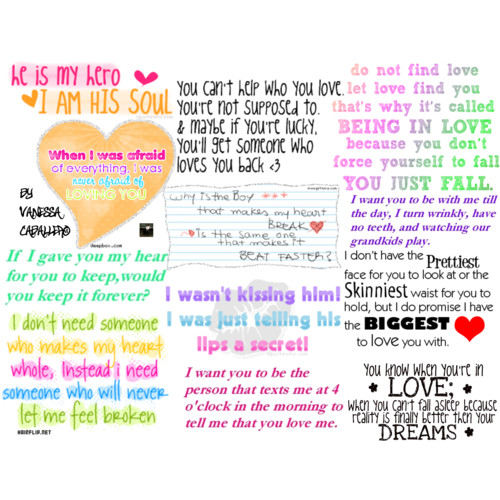 he is my hero
I AM HIS SOUL
When I was afraid
of everything, i was
never afraid of
LOVING YOU
BY
VANESSA
CABALLERO
deepbox.com
If I gave you my hear
for you to keep,would
you keep it forever?
I don't need someone
who makes my heart
whole, Instead i need
someone who will never
let me feel broken
HAIRFLIP.NET
You can't help who you love,
You're not supposed to.
& maybe if you're lucky,
You'll get someone who
loves you back <3
why is the Boy
that makes my heart
BREAK
is the same one
that makes it
BEAT FASTER?
I wasn't kissing him!
I was just telling his
lips a secret!
I want you to be the
person that texts me at 4
o'clock in the morning to
tell me that you love me.
do not find love
let love find you
that's why it's called
BEING IN LOVE
because you don't
force yourself to fall
YOU JUST FALL.
I want you to be with me till
the day, I turn wrinkly, have
no teeth, and watching our
grandkids play.
I don't have the Prettiest
face for you to look at or the
Skinniest waist for you to
hold, but I do promise I have
the BIGGEST
to love you with.
You know when you're in
LOVE;
when you can't fall asleep because
reality is finally better then your
DREAMS